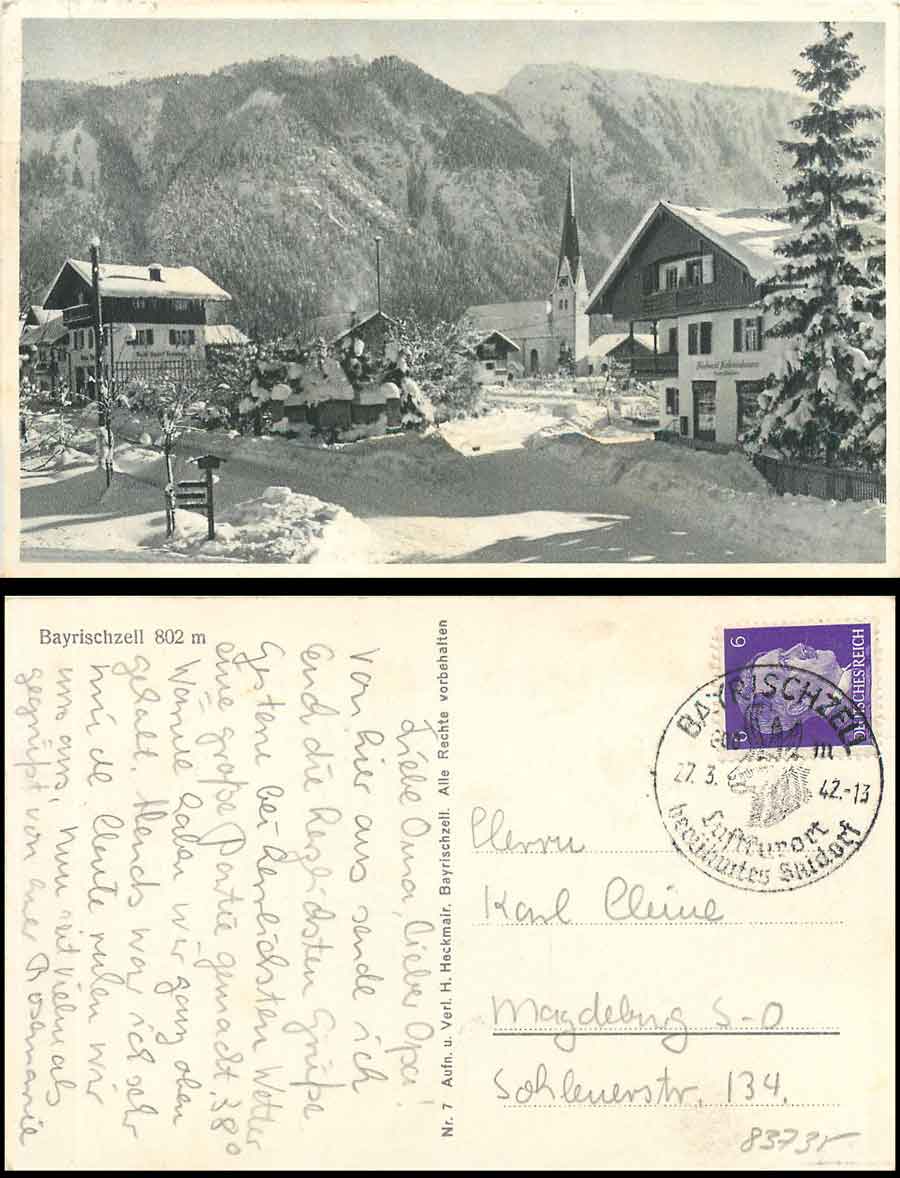 Bayrischzell 802 m
Liebe Oma, lieber Opa!
Von hier aus sende ich
Euch die herzlichsten Grüße.
Gestern bei herrlichsten Wetter
eine große Partie gemacht. 38°
Wärme haben wir ganz oben
gehabt. Abends war ich sehr
müde. Heute ruhen wir
uns aus. Nun seit vielmals
gegrüßt von eurer Rosemarie
Nr. 7 Aufn. u. Verl. H. Heckmair, Bayrischzell. Alle Rechte vorbehalten
6
6
DEUTSCHES REICH
BAYRISCHZELL
802 m
27. 3. 42.-13
Luftkurort
berühmtes Skidorf
Herrn
Karl
Magdeburg S-O
134.
8373r